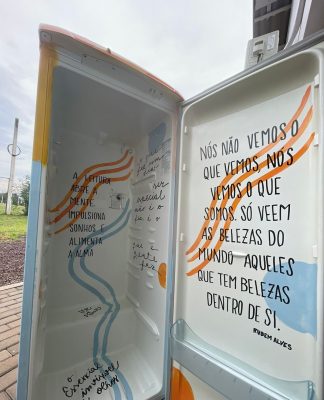 A LEITURA
ABRE A
MENTE
IMPULSIONA
SONHOS E
ALIMENTA
A ALMA
ser
especial
não é o
O Essencial
invisível
olhos
NÓS NÃO VEMOS O
QUE VEMOS, NÓS
VEMOS O QUE
SOMOS. SÓ VEEM
AS BELEZAS DO
MUNDO AQUELES
QUE TEM BELEZAS
DENTRO DE SI.
RUBEM ALVES